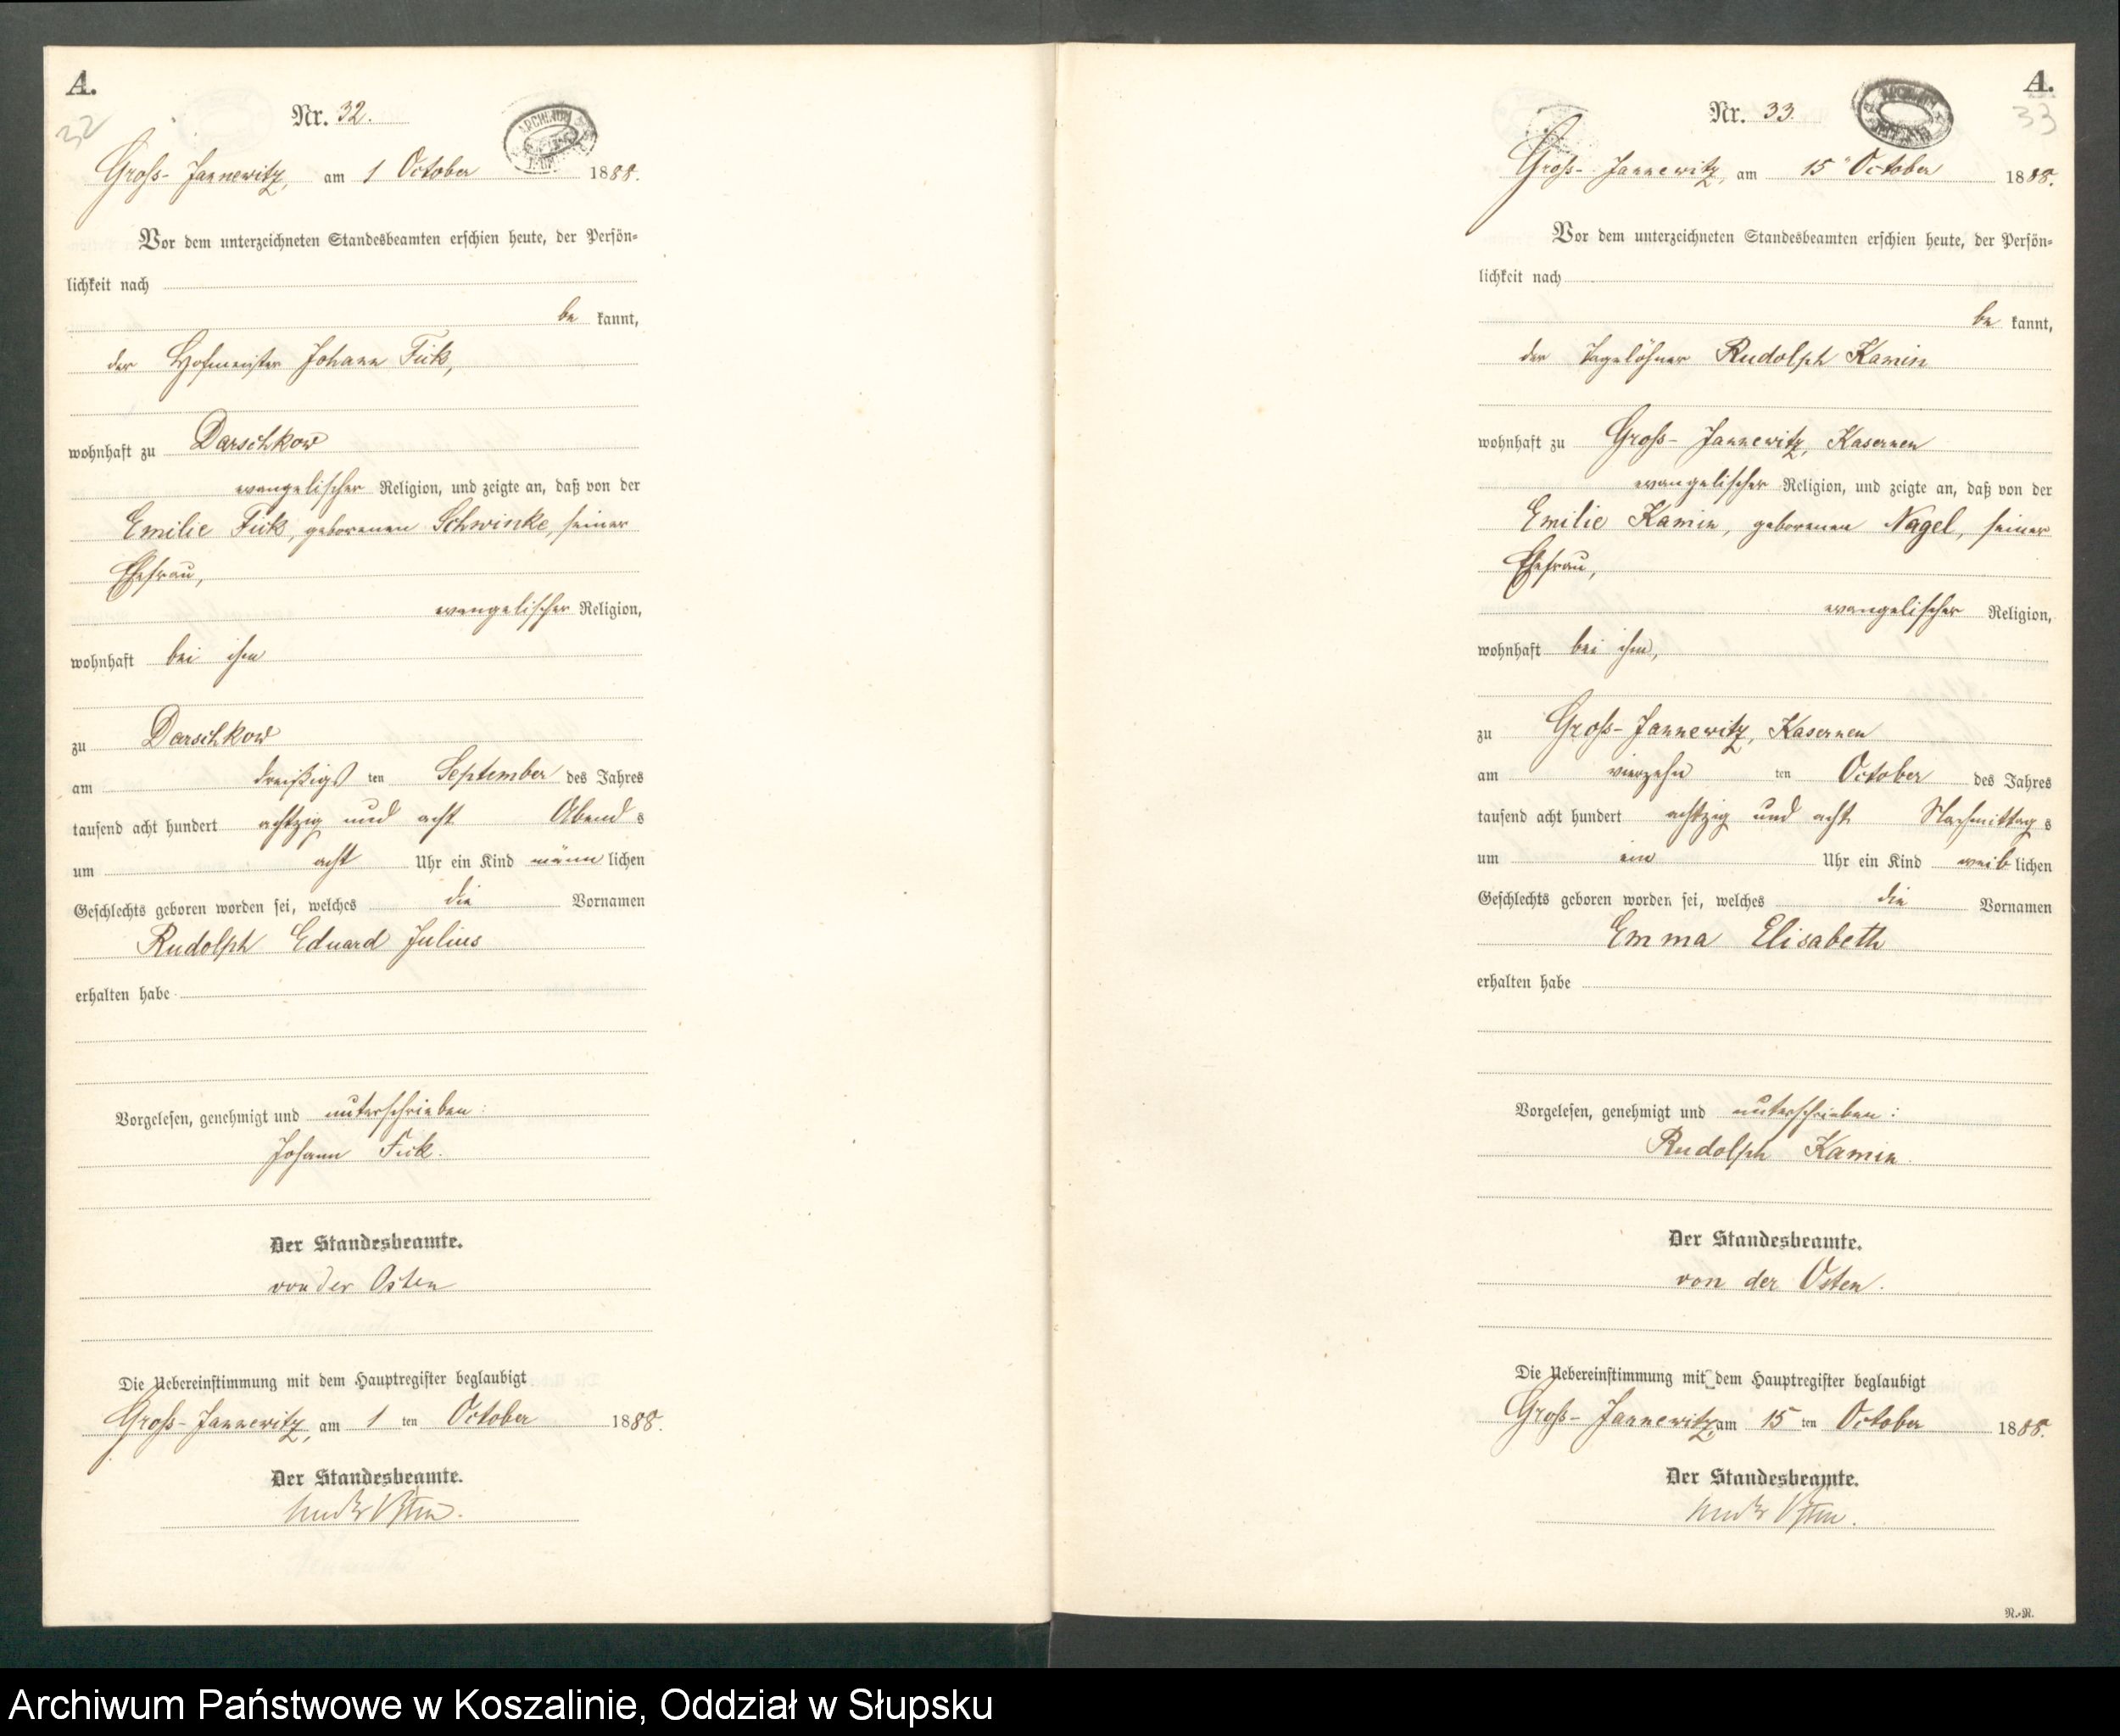 A.
32
Nr. 32.
Gross-Jannewitz, am 1 October 1888.
Vor dem unterzeichneten Standesbeamten erschien heute, der Persön=
lichkeit nach
be kannt,
der Hofmeister Johann Fick,
wohnhaft zu Darschkow
evangelischer Religion, und zeigte an, daß von der
Emilie Fick, geborenen Schwinke, seiner
Ehefrau,
evangelischer Religion,
wohnhaft bei ihm
zu Darschkow
am dreißigs ten September des Jahres
tausend acht hundert achtzig und acht Abend s
um acht Uhr ein Kind männ lichen
Geschlechts geboren worden sei, welches die Vornamen
Rudolph Eduard Julius
erhalten habe
Vorgelesen, genehmigt und unterschrieben:
Johann Fick.
Der Standesbeamte.
von der Osten
Die Uebereinstimmung mit dem Hauptregister beglaubigt
Gross-Jannewitz, am 1 ten October 1888.
Der Standesbeamte.
von der Osten.
A.
33
Nr. 33.
Gross-Jannewitz, am 15 October 1888.
Vor dem unterzeichneten Standesbeamten erschien heute, der Persön=
lichkeit nach
be kannt,
der Tagelöhner Rudolph Kamin
wohnhaft zu Gross-Jannewitz, Kasernen
evangelischer Religion, und zeigte an, daß von der
Emilie Kamin, geborenen Nagel, seiner
Ehefrau,
evangelischer Religion,
wohnhaft bei ihm,
zu Gross-Jannewitz, Kasernen
am vierzehn ten October des Jahres
tausend acht hundert achtzig und acht Nachmittag s
um ein Uhr ein Kind weib lichen
Geschlechts geboren worden sei, welches die Vornamen
Emma Elisabeth
erhalten habe
Vorgelesen, genehmigt und unterschrieben:
Rudolph Kamin.
Der Standesbeamte.
von der Osten.
Die Uebereinstimmung mit dem Hauptregister beglaubigt
Gross-Jannewitz, am 15 ten October 1888.
Der Standesbeamte.
von der Osten.
N.-N.
Archiwum Państwowe w Koszalinie, Oddział w Słupsku